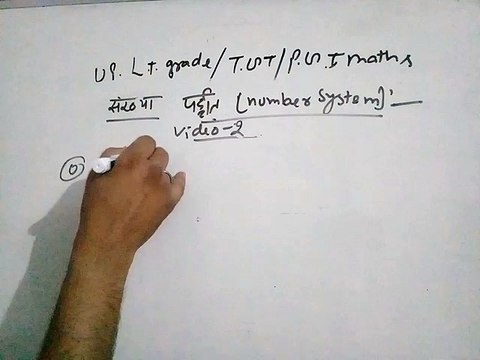 UP. LT. grade / T.G.T / P.G.T maths
संख्या पद्धति (number System) :—
Video-2
①